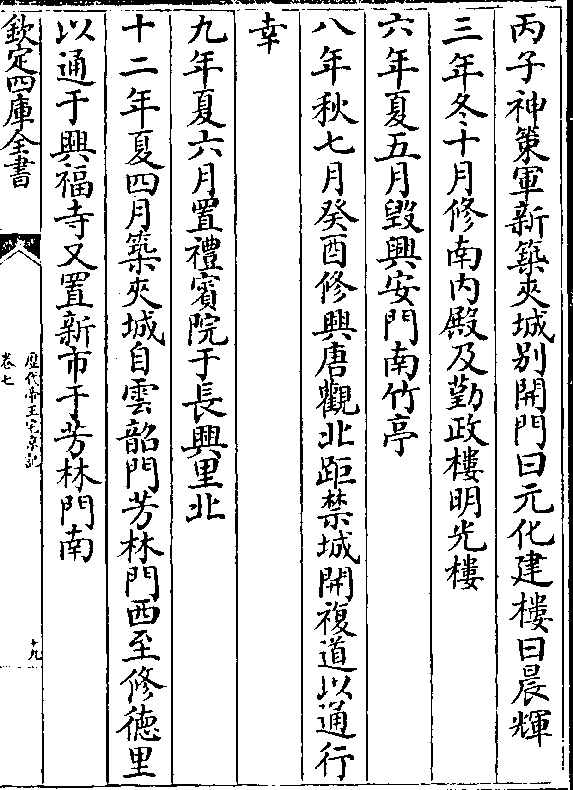 丙子神策軍新築夾城別開門曰元化建樓曰晨輝
三年冬十月修南内殿及勤政樓明光樓
六年夏五月毀興安門南竹亭
八年秋七月癸酉修興唐觀北距禁城開複道以通行
幸
九年夏六月置禮賓院于長興里北
十二年夏四月築夾城自雲韶門芳林門西至修德里
以通于興福寺又置新市于芳林門南
欽定四庫全書
歴代帝王宅京記
卷七
十九